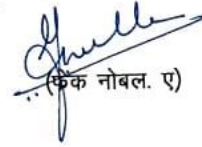 (फ्रैंक नोबल. ए)